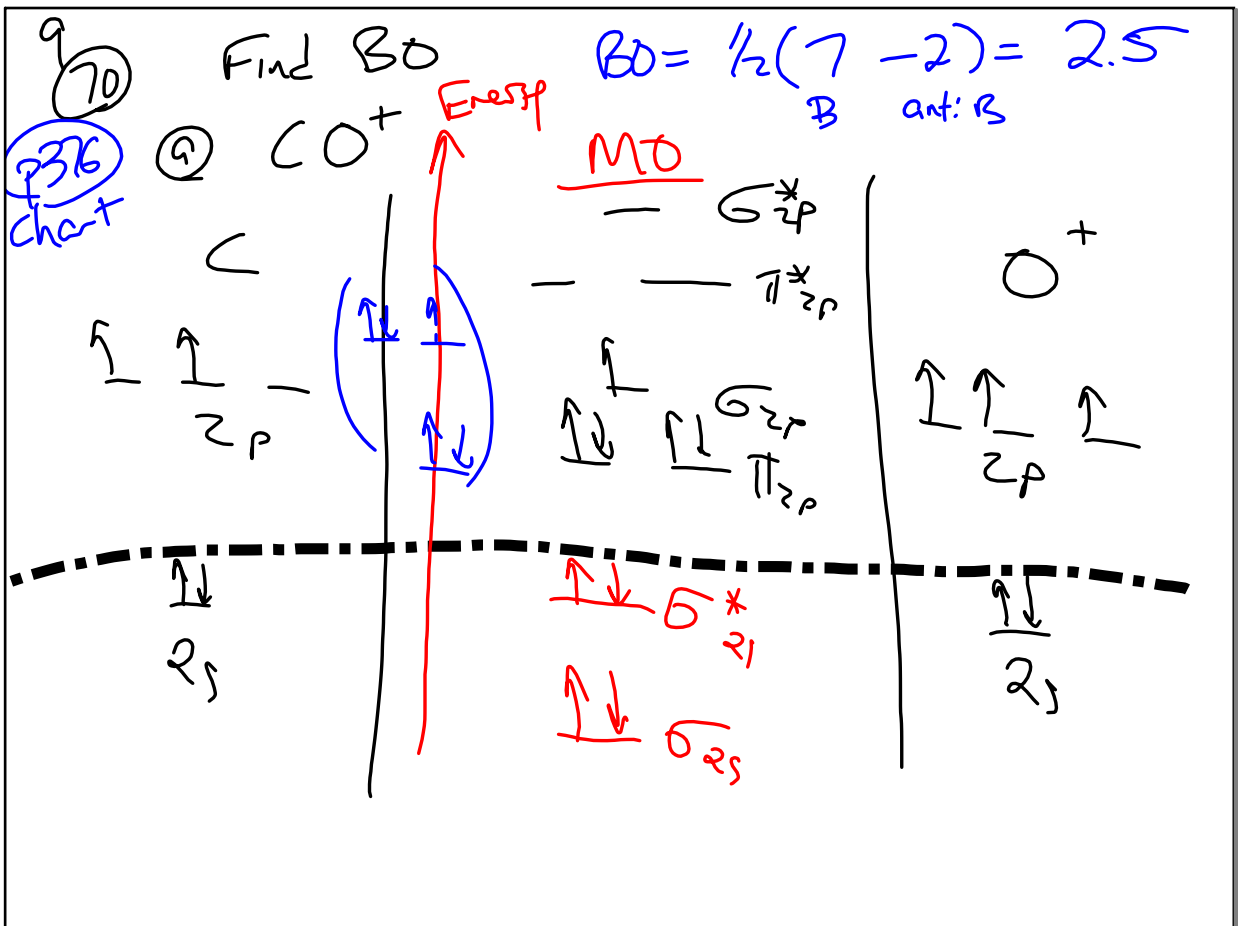 9
70 Find BO BO = 1/2(7 - 2) = 2.5
B anti B
p376 ⓐ CO⁺ Energy MO
chart
σ*2p
C O⁺
π*2p
σ2p
2p π2p 2p
σ*2s
2s 2s
σ2s